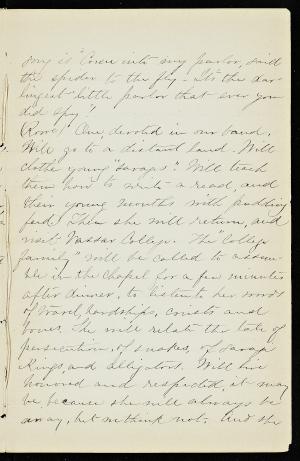 song is "Come into my parlor, said
the spider to the fly - Its the dar-
lingest little parlor that ever you
did spy."
(Rowe) One, devoted in our band,
Will go to a distant land. Will
clothe young "Savages". Will teach
them how to write & read, and
their young mouths with pudding
feed. Then she will return, and
visit Vassar College. The "College
family" will be called to assem-
ble in the Chapel for a few minutes
after dinner, to listen to her words
of travel, hardships, and
She will relate the tale of
persecution, of snakes, of savage
Kings, and alligators. Will live
honored and respected, it may
be because she will always be
away, but methink not; and she